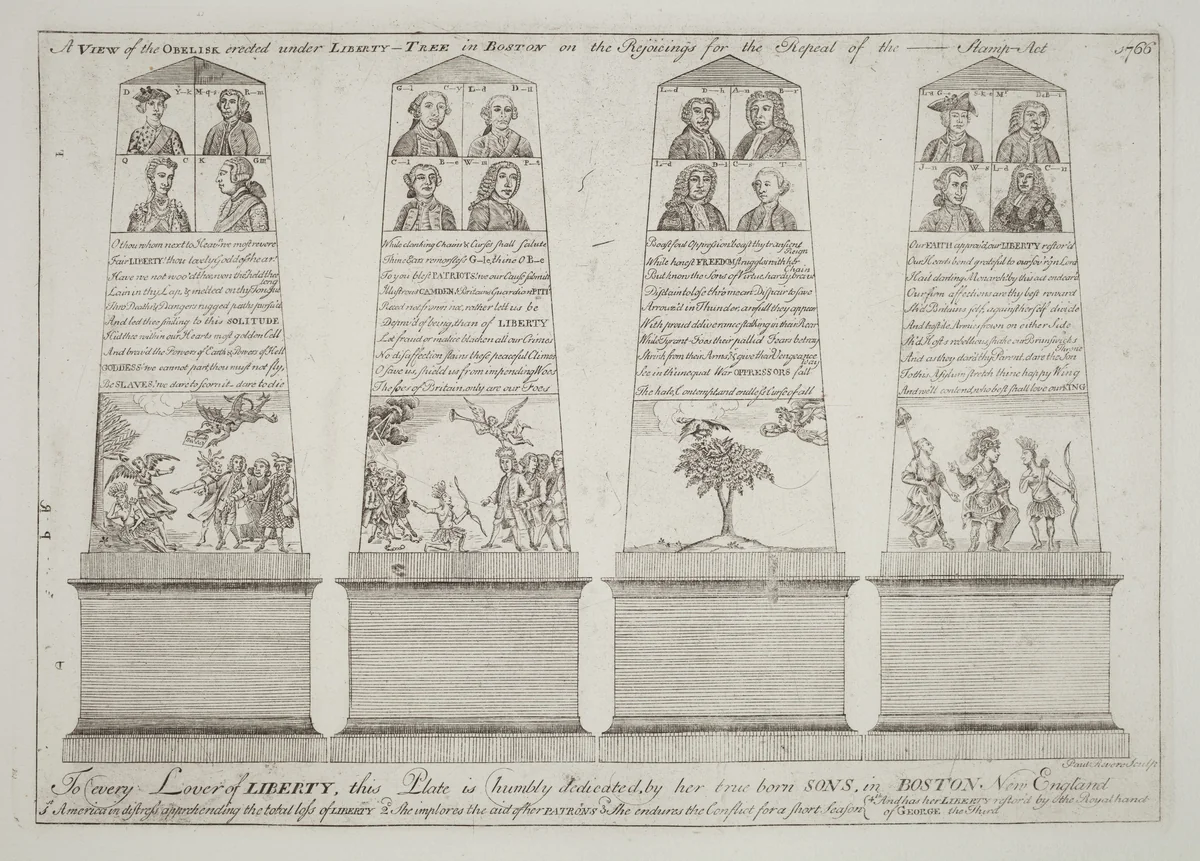 A VIEW of the OBELISK erected under LIBERTY-TREE in BOSTON on the Rejoicings for the Repeal of the —— Stamp-Act 1766
D Y-k M-q-s R-m
Q C K G IIId
O thou whom next to Heav'n we most revere
Fair LIBERTY! thou lovely Goddess hear!
Have we not woo'd thee, won thee, held thee long
Lain in thy Lap, & melted on thy Tongue
Thro Deaths & Dangers rugged paths pursu'd
And led thee smiling to this SOLITUDE
Hid thee within our Hearts most golden Cell
And brav'd the Powers of Earth & Powers of Hell
GODDESS! we cannot part, thou must not fly,
Be SLAVES! we dare to scorn it - dare to die
G-l C-y L-d
C-l B-e W-m P-t
While clanking Chains & Curses shall salute
Thine Ears remorseless G-le, & thine O B-e
To you blest PATRIOTS! we our Cause submit
Illustrous CAMDEN, & Britains Guardian PITT
Recede not, frown not, rather let us be
Depriv'd of being, than of LIBERTY
Let fraud or malice blacken all our Crimes
No disaffection stains these peaceful Climes
O save us, shield us from impending Woes
The foes of Britain, only are our Foes
L-d D-h A-n B-r
L-d D-l C-s T-d
Boast foul Oppression, boast thy transient Reign
While honest FREEDOM struggles with her Chain
But know the Sons of Virtue, hardy, brave
Disdain to lose thro mean Dispair to save
Arrow'd in Thunder, awfull they appear
With proud deliverance stalking in their Rear
While Tyrant-Foes their pallid Fears betray
Shrink from their Arms, & give their Vengeance way
See in th' unequal War OPPRESSORS fall
The hate, Contempt, and endless Curse of all
L-d G- S-k-e Mr D B-r
J-n W-s L-d C-n
Our FAITH approv'd, our LIBERTY restor'd
Our Hearts bend grateful to our sov'reign Lord
Hail darling Monarch! by this act endear'd
Our firm affections are thy best reward
Sh'd Britains self, against herself divide
And hostile Armies frown on either Side
Sh'd Hosts rebellious, shake our Brunswicks Throne
And as they dar'd thy Parent, dare the Son
To this Asylum stretch thine happy Wing
And we'll contend, who best shall love our KING
Paul Revere Sculp
To every Lover of LIBERTY, this Plate is humbly dedicated, by her true born SONS, in BOSTON New England
1st America in distress apprehending the total loss of LIBERTY 2d She implores the aid of her PATRONS 3d She endures the Conflict for a short Season 4th And has her LIBERTY restor'd by the Royal hand
of GEORGE the Third